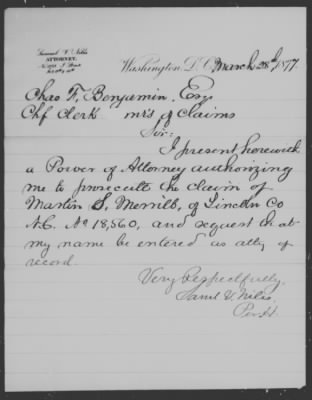 Samuel V. Niles
ATTORNEY.
Washington, D. C. March 28th 1877.
Chas F. Benjamin, Esq
Chf Clerk of Claims
Sir:
I present herewith
a Power of Attorney authorizing
me to prosecute the claim of
Martin S. Merrill, of Lincoln Co
N.C. No 18,560, and request that
my name be entered as atty of
record.
Very Respectfully,
Saml V. Niles.
Per H.